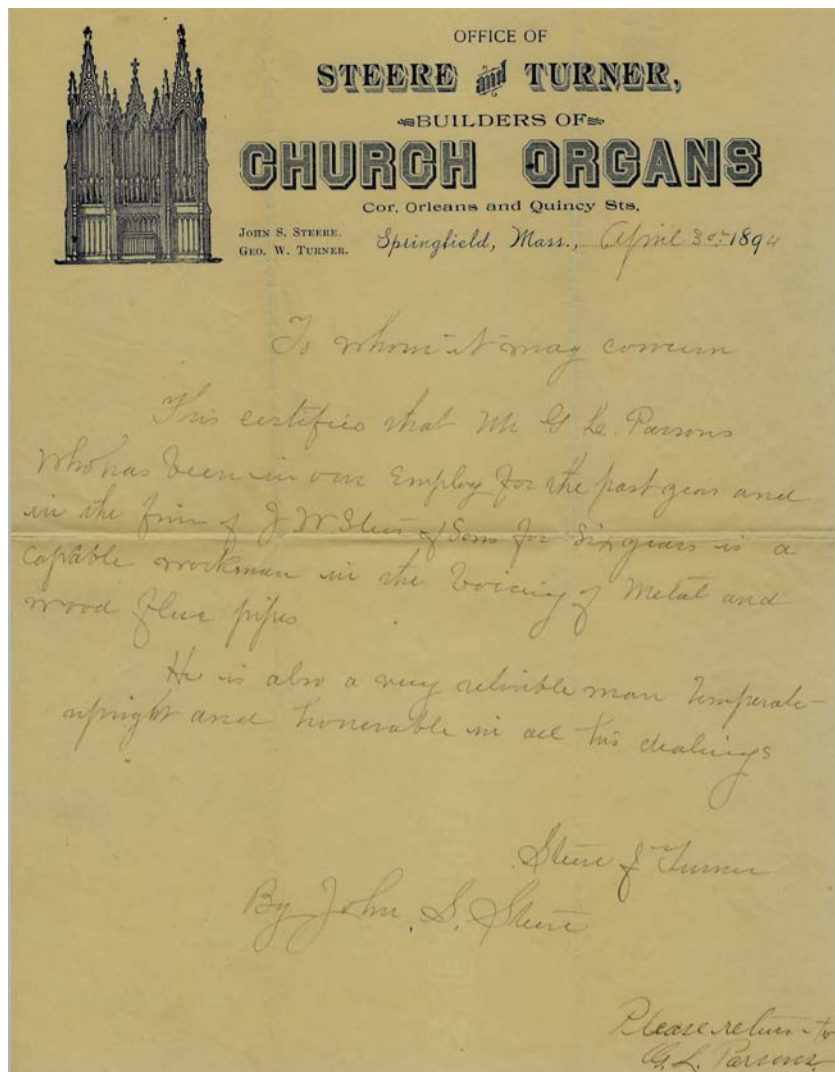 OFFICE OF
STEERE and TURNER,
BUILDERS OF
CHURCH ORGANS
Cor. Orleans and Quincy Sts.
JOHN S. STEERE.
GEO. W. TURNER.
Springfield, Mass., April 30th 1894
To whom it may concern
This certifies that Mr G L. Parsons
who has been in our Employ for the past year and
in the firm of J W Steere & Sons for Six years is a
capable workman in the Voicing of Metal and
wood flue pipes
He is also a very reliable man Temperate
upright and honerable in all his dealings
Steere & Turner
By John. S. Steere
Please return to
G. L. Parsons.